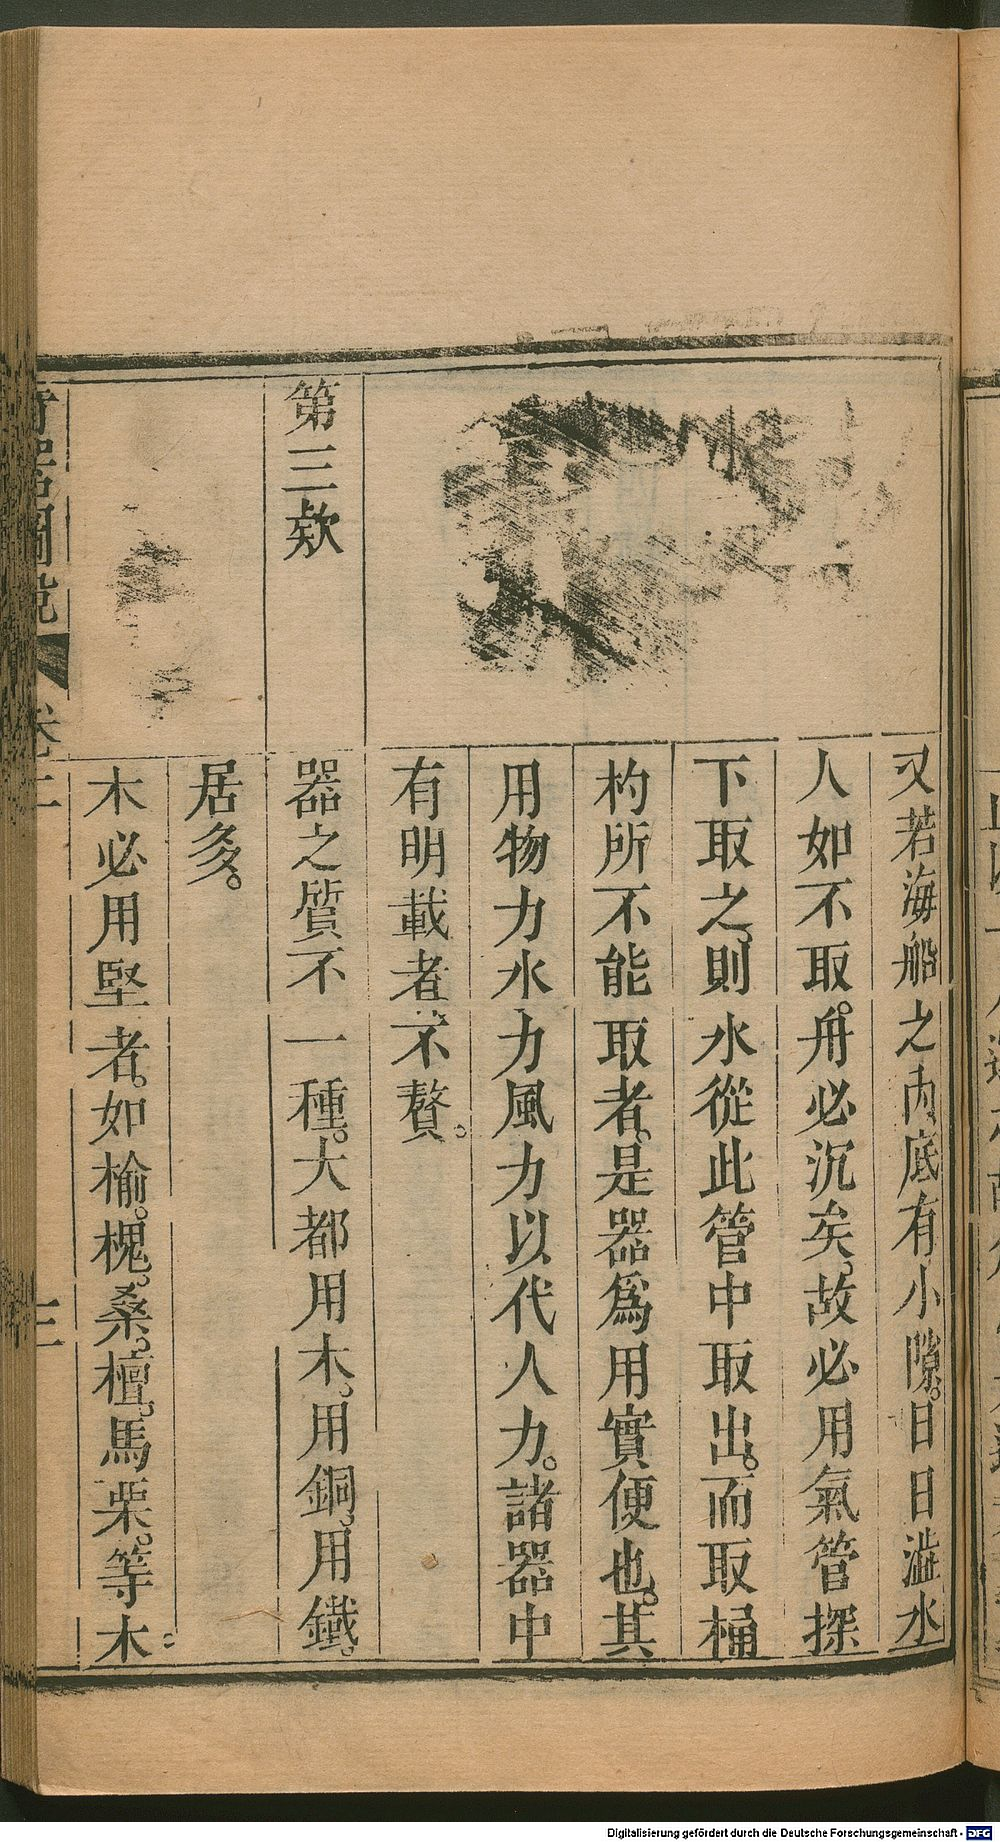 又若海船之內底有小隙。日日溢水
人如不取。舟必沉矣。故必用氣管探
下取之。則水從此管中取出。而取桶
杓所不能取者。是器爲用實便也。其
用物力水力風力以代人力。諸器中
有明載者不贅。
第三欵
器之質不一種。大都用木。用銅。用鐵。
居多。
木必用堅者。如榆。槐。桑。檀。馬栗。等木
奇器圖說
卷二
三
Digitalisierung gefördert durch die Deutsche Forschungsgemeinschaft - DFG